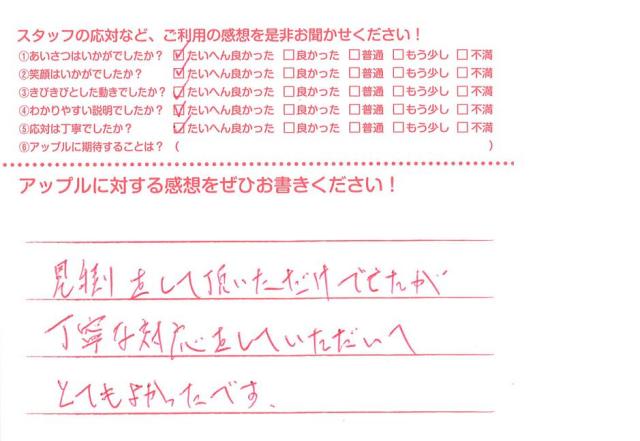 スタッフの応対など、ご利用の感想を是非お聞かせください！
①あいさつはいかがでしたか？ ☑たいへん良かった □良かった □普通 □もう少し □不満
②笑顔はいかがでしたか？ ☑たいへん良かった □良かった □普通 □もう少し □不満
③きびきびとした動きでしたか？ ☑たいへん良かった □良かった □普通 □もう少し □不満
④わかりやすい説明でしたか？ ☑たいへん良かった □良かった □普通 □もう少し □不満
⑤応対は丁寧でしたか？ ☑たいへん良かった □良かった □普通 □もう少し □不満
⑥アップルに期待することは？ （ ）
アップルに対する感想をぜひお書きください！
見積をして頂いただけでしたが
丁寧な対応をしていただいて
とてもよかったです。